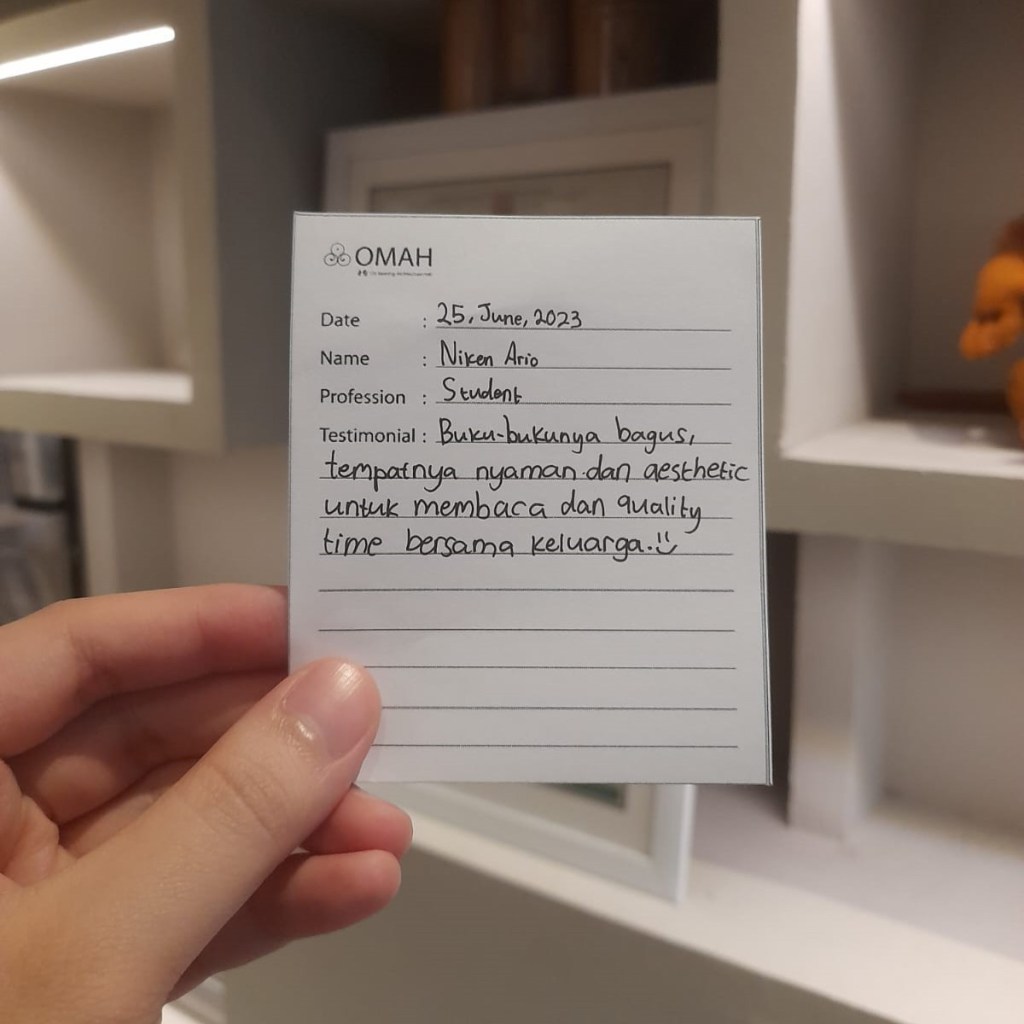 OMAH
Date : 25, June, 2023
Name : Niken Ario
Profession : Student
Testimonial : Buku-bukunya bagus,
tempatnya nyaman dan aesthetic
untuk membaca dan quality
time bersama keluarga.